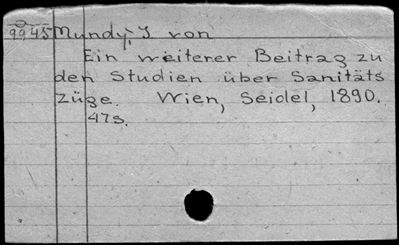 9945 Mundy, J von
Ein weiterer Beitrag zu
den Studien über Sanitäts
Züge. Wien, Seidel, 1890.
47s.